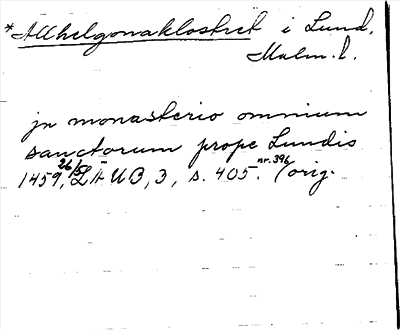 *Allhelgonaklostret i Lund,
Malm. l.
jn monasterio omnium
sanctorum prope Lundis
1459, 26/5, LÄUB, 3, s. 405. nr. 396 (orig.